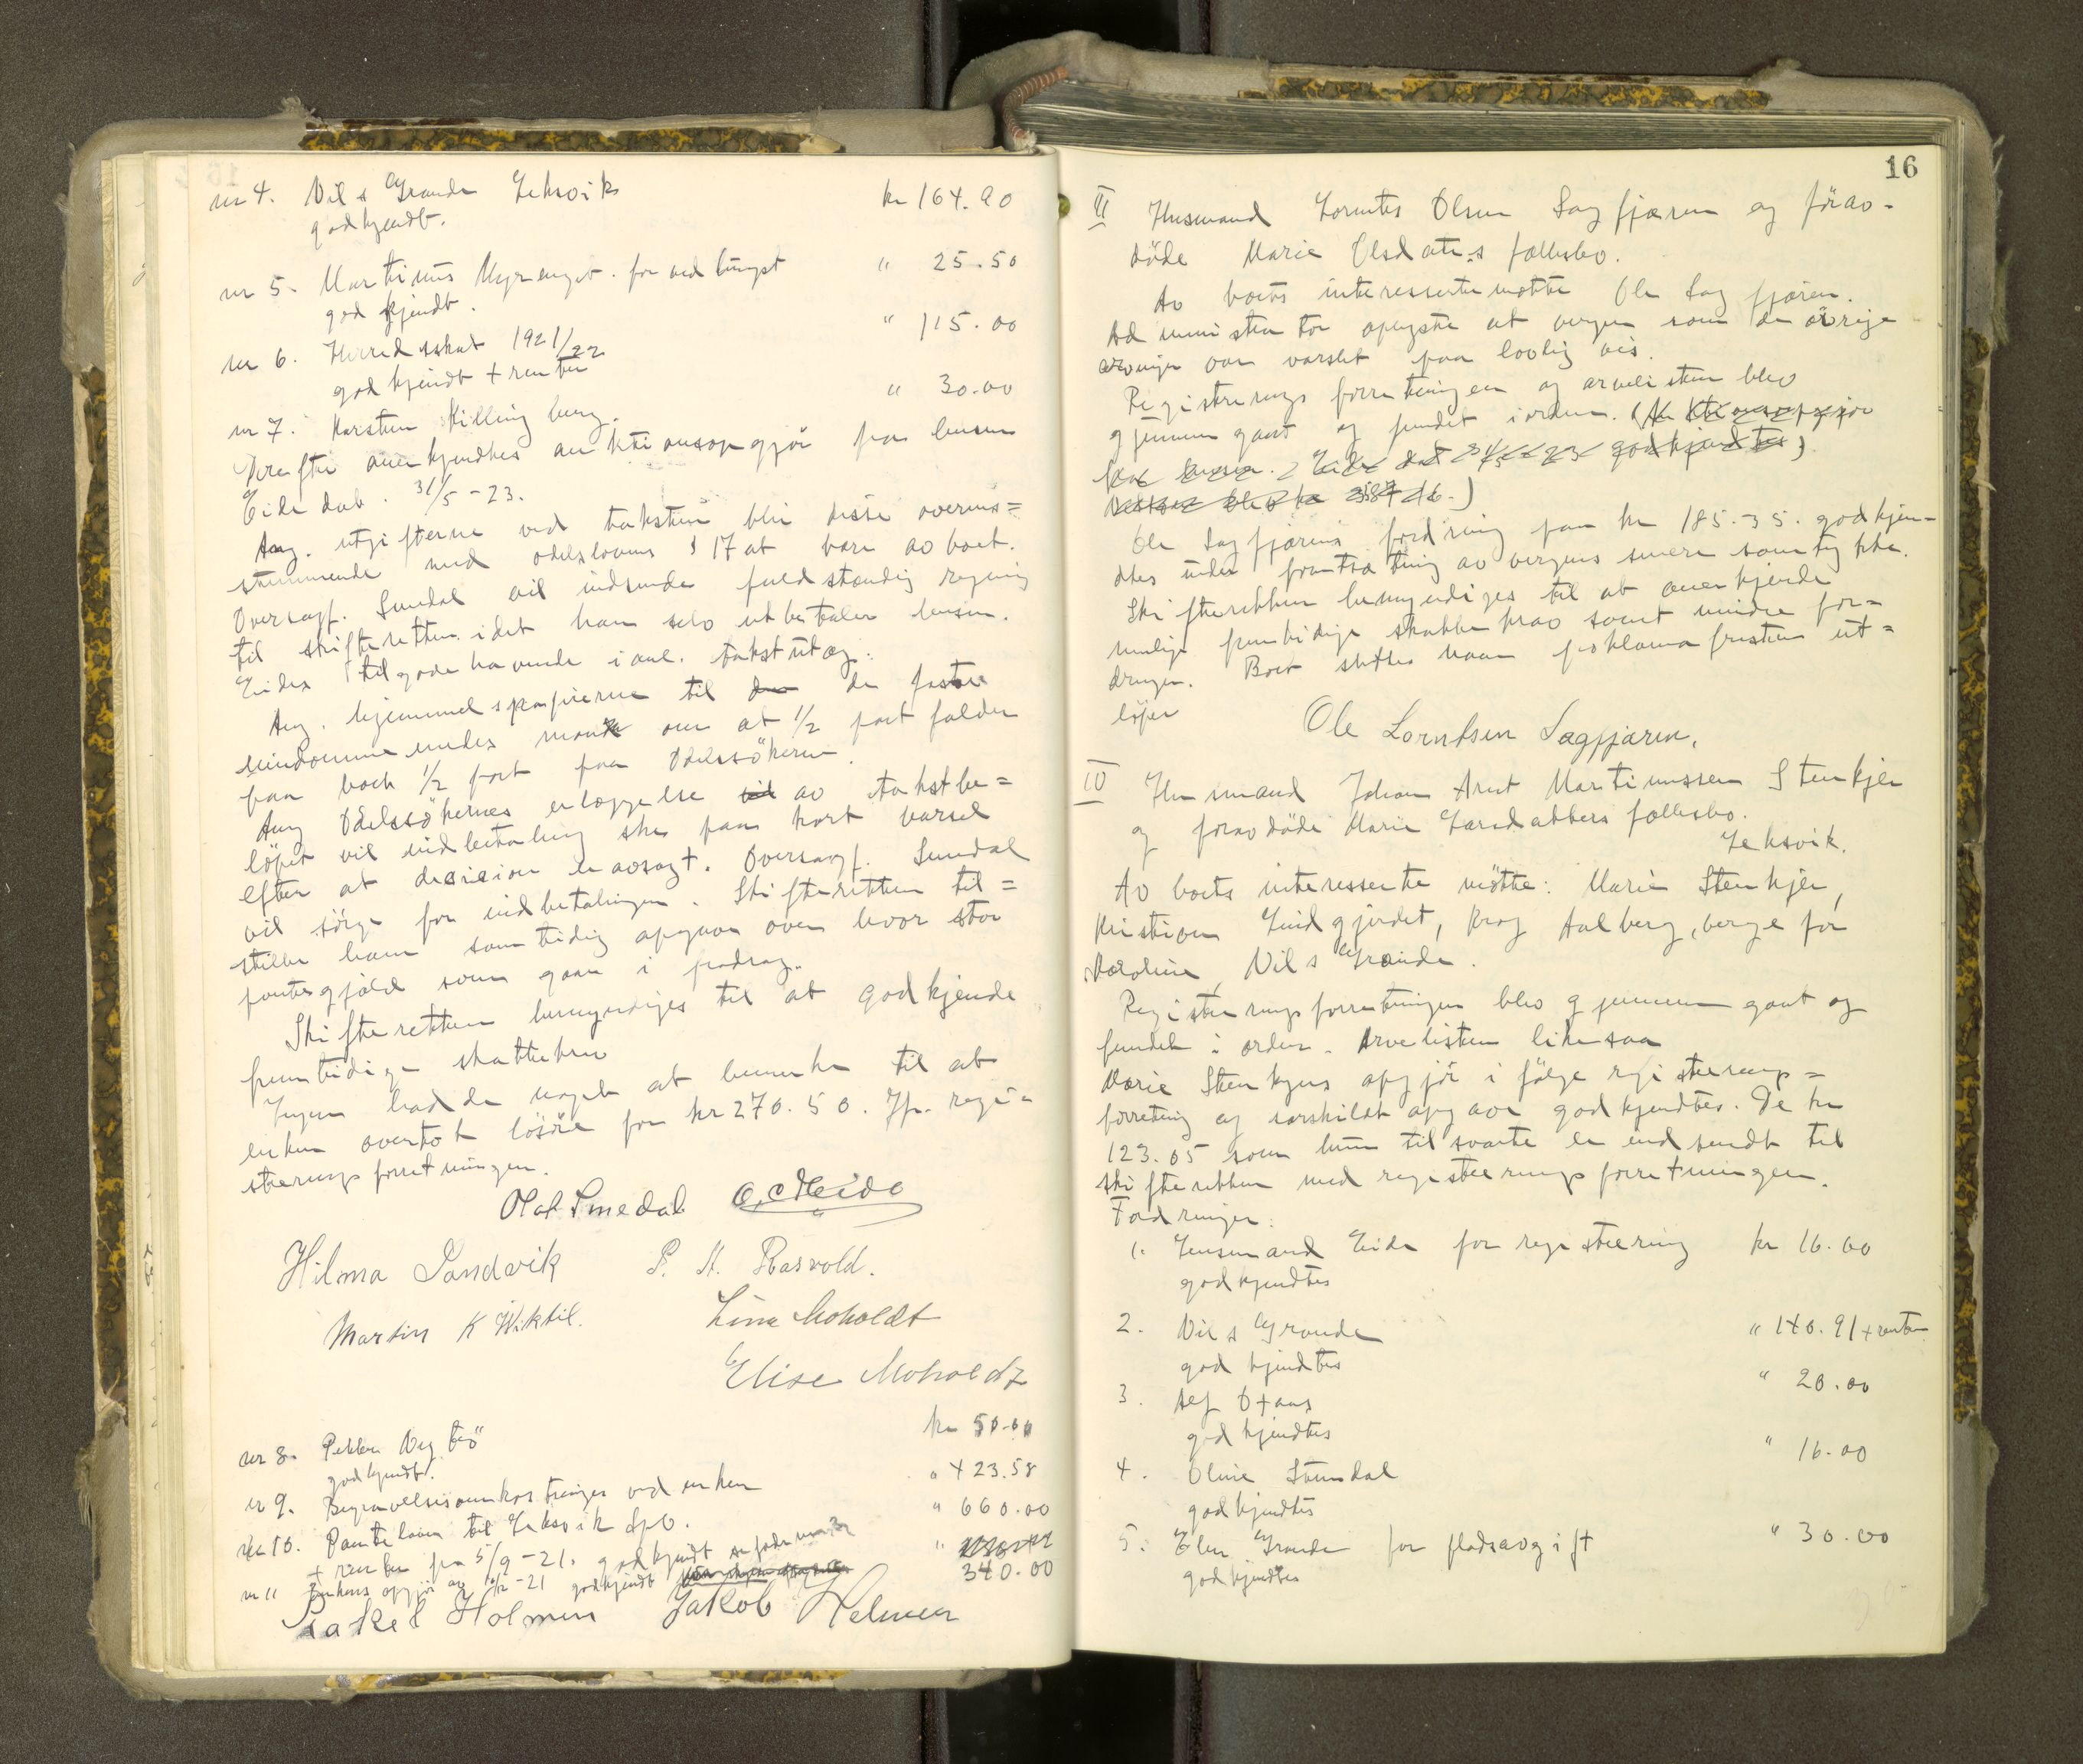 nr 4. Nils Grande Leksvik kr 164.90
godkjendt.
nr 5. Martinus Myrenget. for ved tingst " 25.50
godkjendt.
nr 6. Herredsskat 1921/22 " 115.00
godkjendt + renter
nr 7. Karsten Killingberg. " 30.00
Derefter anerkjendtes auktionsopgjör fra lensm
Eide dat. 31/5-23.
Ang. utgifterne ved taksten blir disse overens=
stemmende med odelslovens § 17 at bære av boet.
Oversagf. Smedal vil indsende fuldstændig regning
til skifteretten idet han selv utbetaler lensm.
Eides tilgodehavende i anl. takstutlæg.
Ang. hjemmelspapirerne til de faste
eiendomme endes man om at 1/2 part falder
paa boet 1/2 part paa Odelssökeren.
Ang Odelssökernes erlæggelse av takstbe=
löpet vil indbetaling ske paa kort varsel
efter at decision er avsagt. Oversagf. Smedal
vil sörge for indbetalingen. Skifteretten til=
stiller ham samtidig opgave over hvor stor
pantegjæld som gaar i fradrag.
Skifteretten bemyndiges til at godkjende
fremtidige skattekrav
Ingen hadde noget at bemerke til at
enken overtok lösöre for kr 270.50. Jfr. regi=
streringsforretningen.
Olaf Smedal O. C. Heide
Hilma Sandvik P. A. Rasvold.
Martin K Wiktil. Lina Moholdt
Elise Moholdt
nr 8. Petter Nez tö kr 50.00
godkjendt.
nr 9. Begravelsesomkostninger ved enken " 423.58
nr 10. Pantelaan til Leksvik Spb. " 660.00
+ renter fra 5/9-21. godkjendt
nr 11 Enkens opgjör av -21 godkjendt 340.00
Rakel Holmen Jakob Helmen
16
III Husmand Lorntes Olsen Sagfjæren og förav-
döde Marie Olsdatters fællesbo.
Av boets interessenter mötte Ole Sagfjæren.
Administrator oplyste at vergen som de övrige
arvinger var varslet paa lovlig vis.
Registreringsforretningen og arvelisten blev
gjennemgaat og fundet i orden. (Auktionsopgjör
fra lensm. Eide dat 31/5-23 godkjendtes)
Ole Sagfjærens fordring paa kr 185.35. godkjen-
dtes under forutsætning av vergens senere samtykke.
Skifteretten bemyndiges til at anerkjende
mulige fremtidige skattekrav samt mindre for=
dringer. Boet sluttes naar proklamafristen ut=
löper
Ole Lorntsen Sagfjæren.
IV Husmand Johan Arnt Martinussen Stenkjer
og foravdöde Marie Larsdatters fællesbo.
Leksvik.
Av boets interessenter mötte: Marie Stenkjer,
Kristian Lindgjerdet, Krog Aalberg, verge for
Karoline, Nils Grande.
Registreringsforretningen blev gjennemgaat og
fundet i orden. Arvelisten likesaa
Marie Stenkjers opgjör i fölge registrerings=
forretning og særskildt opgave godkjendtes. De kr
123.05 som hun tilsvarte er indsendt til
skifteretten med registreringsforretningen.
Fordringer:
1. Lensmand Eide for registrering kr 16.00
godkjendtes
2. Nils Grande " 140.91 + renter
godkjendtes
3. Alf Otnes " 20.00
godkjendtes
4. Oline Stendal " 16.00
godkjendtes
5. Elen Grande for pladsavgift " 30.00
godkjendtes